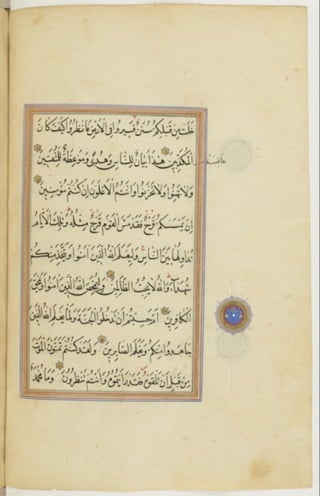 خَلَتْ مِنْ قَبْلِكُمْ سُنَنٌ فَسِيرُوا فِي الْاَرْضِ فَانْظُرُوا كَيْفَ كَانَ
عاقبة
الْمُكَذِّبِينَ هٰذَا بَيَانٌ لِلنَّاسِ وَهُدًى وَمَوْعِظَةٌ لِلْمُتَّقِينَ
وَلَا تَهِنُوا وَلَا تَحْزَنُوا وَاَنْتُمُ الْاَعْلَوْنَ اِنْ كُنْتُمْ مُؤْمِنِينَ
اِنْ يَمْسَسْكُمْ قَرْحٌ فَقَدْ مَسَّ الْقَوْمَ قَرْحٌ مِثْلُهُ وَتِلْكَ الْاَيَّامُ
نُدَاوِلُهَا بَيْنَ النَّاسِ وَلِيَعْلَمَ اللّٰهُ الَّذِينَ اٰمَنُوا وَيَتَّخِذَ مِنْكُمْ
شُهَدَاءَ وَاللّٰهُ لَا يُحِبُّ الظَّالِمِينَ وَلِيُمَحِّصَ اللّٰهُ الَّذِينَ اٰمَنُوا وَيَمْحَقَ
الْكَافِرِينَ اَمْ حَسِبْتُمْ اَنْ تَدْخُلُوا الْجَنَّةَ وَلَمَّا يَعْلَمِ اللّٰهُ الَّذِينَ
جَاهَدُوا مِنْكُمْ وَيَعْلَمَ الصَّابِرِينَ وَلَقَدْ كُنْتُمْ تَمَنَّوْنَ الْمَوْتَ
مِنْ قَبْلِ اَنْ تَلْقَوْهُ فَقَدْ رَاَيْتُمُوهُ وَاَنْتُمْ تَنْظُرُونَ وَمَا مُحَمَّدٌ